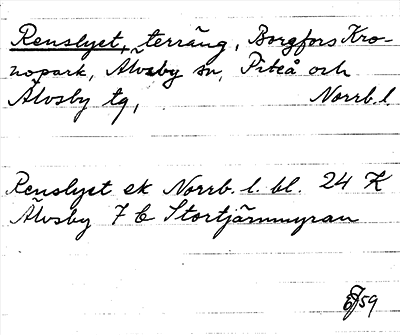 Renslyet, terräng, Borgfors Kro-
nopark, Älvsby sn, Piteå och
Älvsby tg, Norrb.l.
Renslyet ek Norrb. l. bl. 24 K
Älvsby 7 b Stortjärnmyran
/59